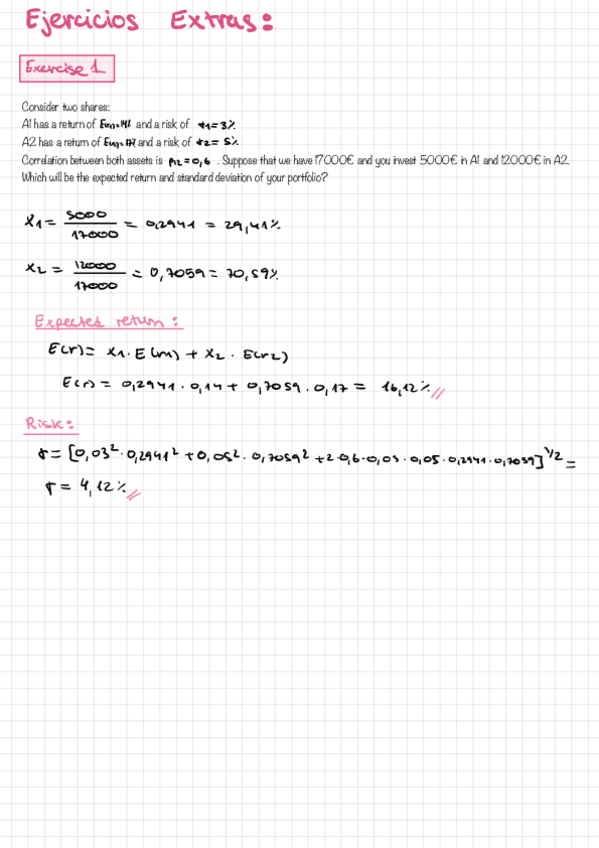 Ejercicios Extras:
Exercise 1
Consider two shares:
A1 has a return of E(r1)=14% and a risk of σ1=3%
A2 has a return of E(r2)=17% and a risk of σ2=5%
Correlation between both assets is ρ12=0,6 . Suppose that we have 17000€ and you invest 5000€ in A1 and 12000€ in A2.
Which will be the expected return and standard deviation of your portfolio?
X1 = 5000/17000 = 0,2941 = 29,41%
X2 = 12000/17000 = 0,7059 = 70,59%
Expected return:
E(r) = X1 · E(r1) + X2 · E(r2)
E(r) = 0,2941 · 0,14 + 0,7059 · 0,17 = 16,12%
Risk:
σ = [0,03² · 0,2941² + 0,05² · 0,7059² + 2·0,6·0,03·0,05·0,2941·0,7059]^1/2 =
σ = 4,12%